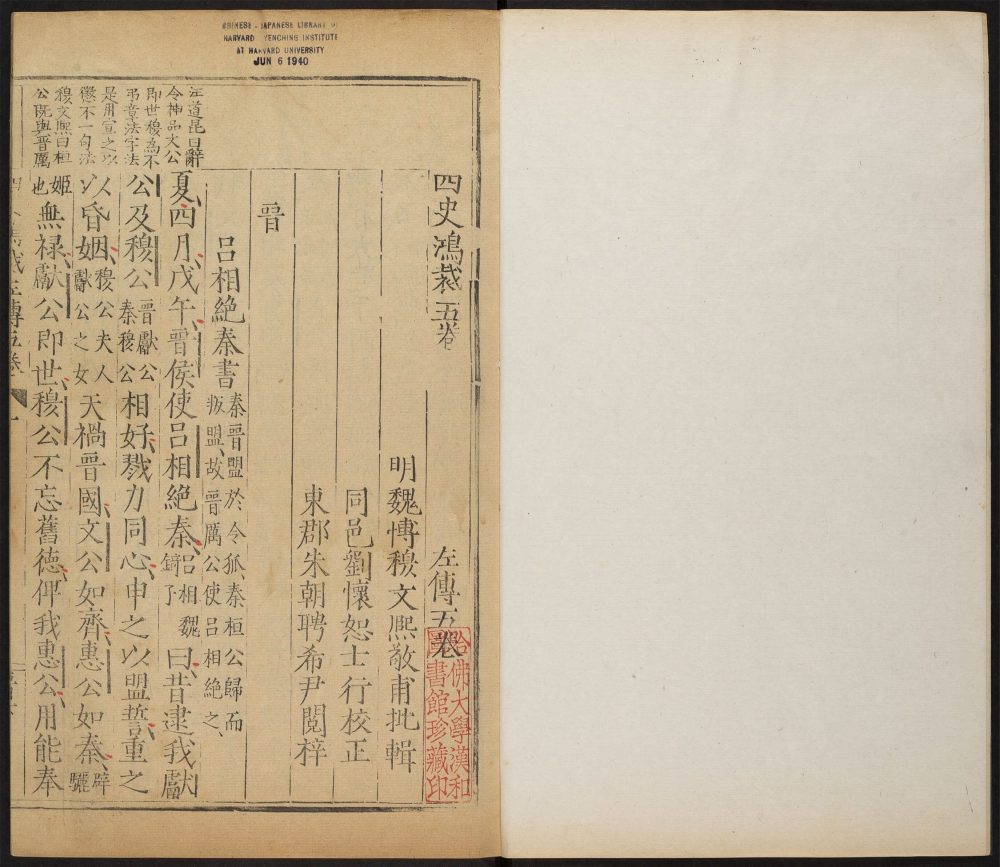 CHINESE - JAPANESE LIBRARY OF
HARVARD YENCHING INSTITUTE
AT HARVARD UNIVERSITY
JUN 6 1940
四史鴻裁五卷 左傳五卷
哈佛大學漢和
圖書館珍藏印
明魏博穆文熙敬甫批輯
同邑劉懷恕士行校正
東郡朱朝聘希尹閱梓
晉
呂相絕秦書 秦晉盟於令狐、秦桓公歸而叛盟、故晉厲公使呂相絕之、
夏四月戊午、晉侯使呂相絕秦、呂相魏錡子曰、昔逮我獻
公及穆公晉獻公秦穆公相好、戮力同心、申之以盟誓、重之
以昏姻、穆公夫人獻公之女天禍晉國、文公如齊、惠公如秦、辟驪
姬也無祿、獻公即世、穆公不忘舊德、俾我惠公、用能奉
汪道昆曰辭
令神品文公
即世穆為不
弔章法字法
是用宣之以
懲不一句法
穆文熙曰桓
公既與晉厲